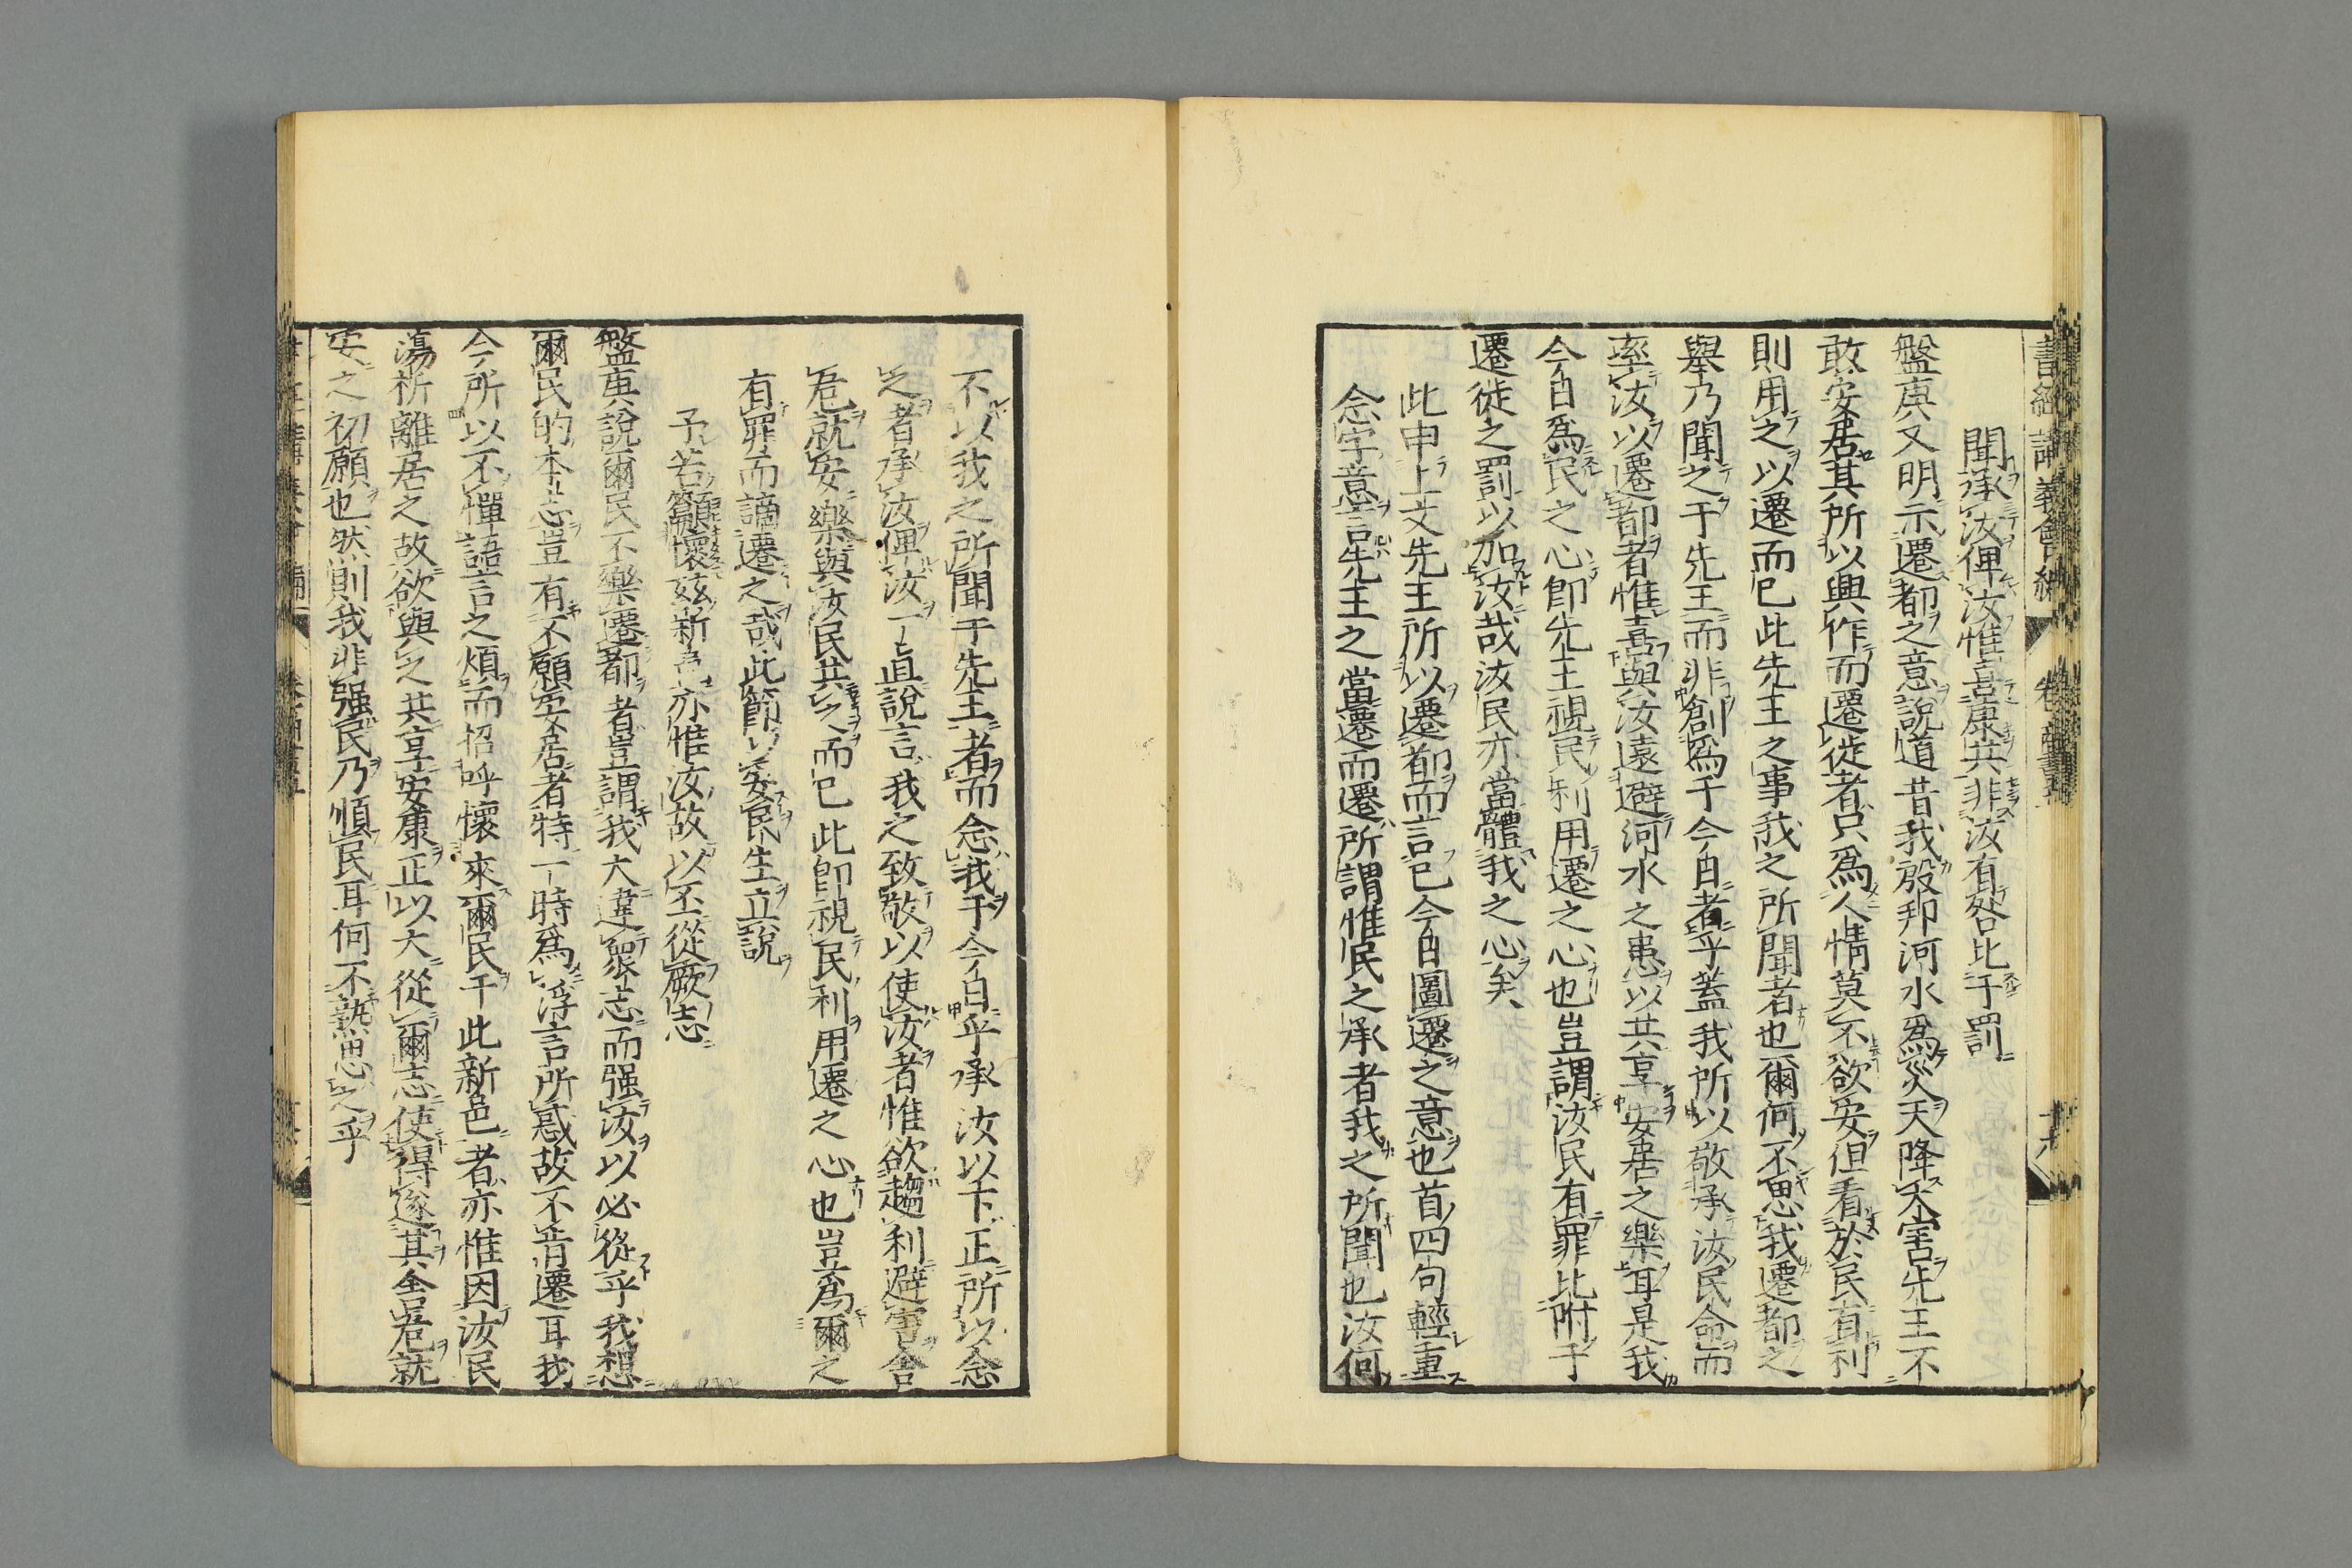 聞承汝俾汝惟喜康共非汝有咎比于罰
盤庚又明示遷都之意說道昔我殷邦河水爲災天降大害先王不
敢安居其所以興作而遷徙者只爲人情莫不欲安但看於民有利
則用之以遷而已此先王之事我之所聞者也爾何不思我遷都之
舉乃聞之于先王而非創爲于今日者乎蓋我所以敬承汝民命而
率汝以遷都者惟喜與汝遠避河水之患以共享安居之樂耳是我
今日爲民之心卽先王視民利用遷之心也豈謂汝民有罪比附于
遷徙之罰以加汝哉汝民亦當體我之心矣
此申上文先王所以遷都而言已今日圖遷之意也首四句輕重
念字意言先王之當遷而遷所謂惟民之承者我之所聞也汝何
不以我之所聞于先王者而念我于今日乎承汝以下正所以念
之者承汝俾汝一直說言我之致敬以使汝者惟欲趨利避害舍
危就安樂與汝民共之而已此卽視民利用遷之心也豈爲爾之
有罪而謫遷之哉此節以安民生立說
予若籲懷茲新邑亦惟汝故以丕從厥志
盤庚說爾民不樂遷都者豈謂我大違衆志而强汝以必從乎我想
爾民的本志豈有不願安居者特一時爲浮言所惑故不肯遷耳我
今所以不憚語言之煩而招呼懷來爾民于此新邑者亦惟因汝民
蕩析離居之故欲與之共享安康正以大從爾志使得遂其舍危就
安之初願也然則我非强民乃順民耳何不熟思之乎